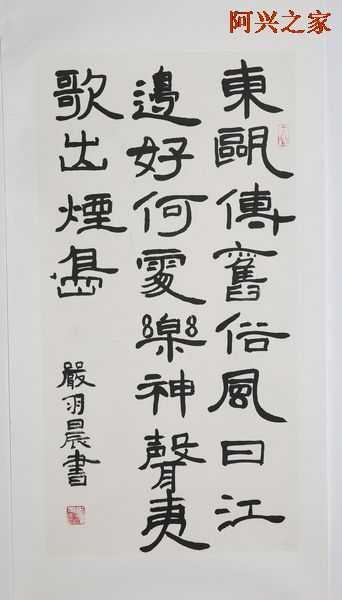 阿兴之家
東甌傳舊俗風日江
邊好何處樂神聲夷
歌出煙島
嚴羽晨書